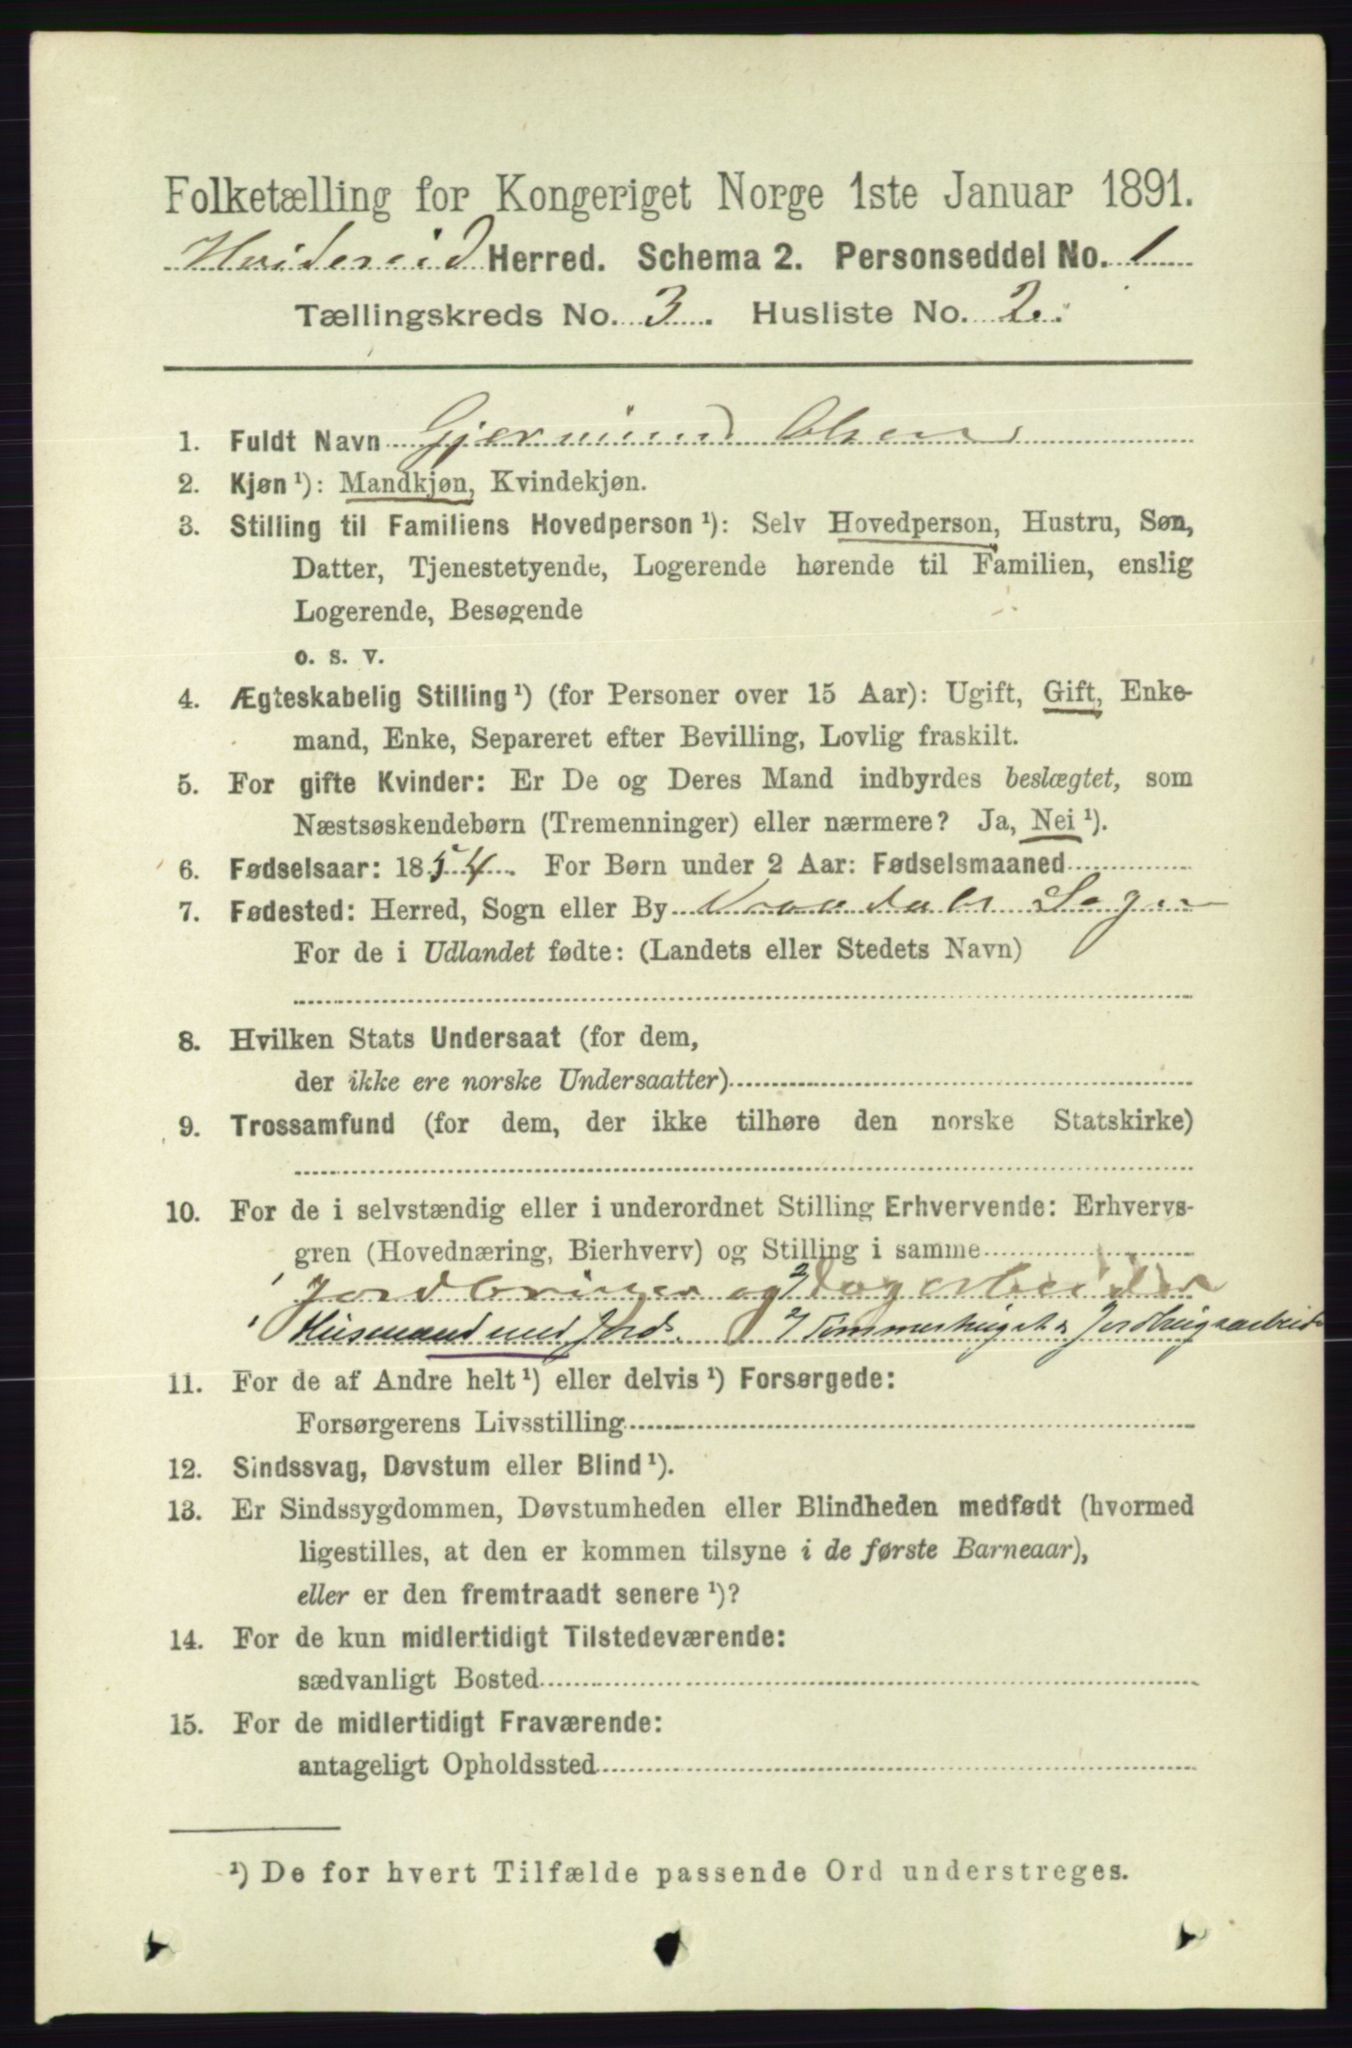 Folketælling for Kongeriget Norge 1ste Januar 1891.
Hvidereid Herred. Schema 2. Personseddel No. 1
Tællingskreds No. 3. Husliste No. 2.
1. Fuldt Navn Gjermund Olsen
2. Kjøn ¹): Mandkjøn, Kvindekjøn.
3. Stilling til Familiens Hovedperson ¹): Selv Hovedperson, Hustru, Søn,
Datter, Tjenestetyende, Logerende hørende til Familien, enslig
Logerende, Besøgende
o. s. v.
4. Ægteskabelig Stilling ¹) (for Personer over 15 Aar): Ugift, Gift, Enke-
mand, Enke, Separeret efter Bevilling, Lovlig fraskilt.
5. For gifte Kvinder: Er De og Deres Mand indbyrdes beslægtet, som
Næstsøskendebørn (Tremenninger) eller nærmere? Ja, Nei ¹).
6. Fødselsaar: 1854. For Børn under 2 Aar: Fødselsmaaned
7. Fødested: Herred, Sogn eller By Vraadals Sogn
For de i Udlandet fødte: (Landets eller Stedets Navn)
8. Hvilken Stats Undersaat (for dem,
der ikke ere norske Undersaatter)
9. Trossamfund (for dem, der ikke tilhøre den norske Statskirke)
10. For de i selvstændig eller i underordnet Stilling Erhvervende: Erhvervs-
gren (Hovednæring, Bierhverv) og Stilling i samme
Jordbruger og 2) Dagarbeider
Husmand med Jord. 2) Tømmerhugst & Jordbrugsarbeid
11. For de af Andre helt ¹) eller delvis ¹) Forsørgede:
Forsørgerens Livsstilling
12. Sindssvag, Døvstum eller Blind ¹).
13. Er Sindssygdommen, Døvstumheden eller Blindheden medfødt (hvormed
ligestilles, at den er kommen tilsyne i de første Barneaar),
eller er den fremtraadt senere ¹)?
14. For de kun midlertidigt Tilstedeværende:
sædvanligt Bosted
15. For de midlertidigt Fraværende:
antageligt Opholdssted
¹) De for hvert Tilfælde passende Ord understreges.